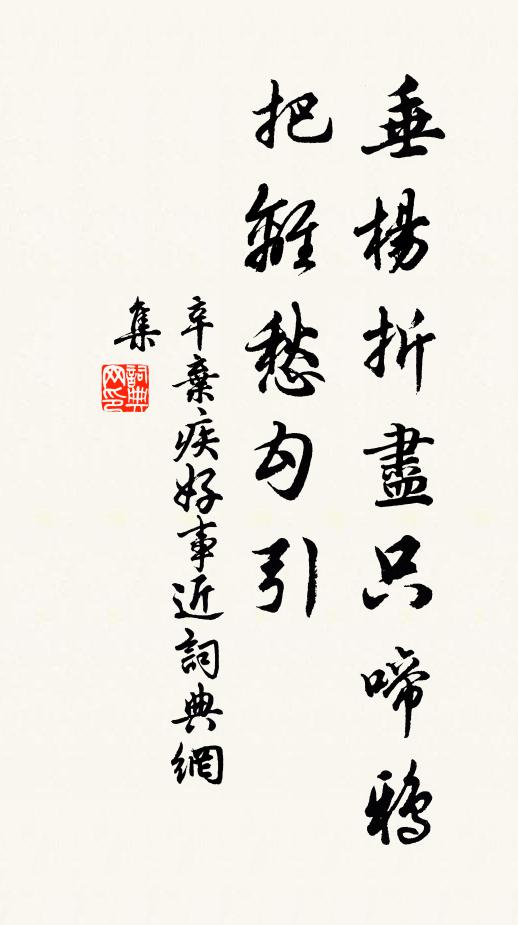 垂楊折盡只啼鴉
把離愁勾引
辛棄疾好事近詞典網
集
詞典网印